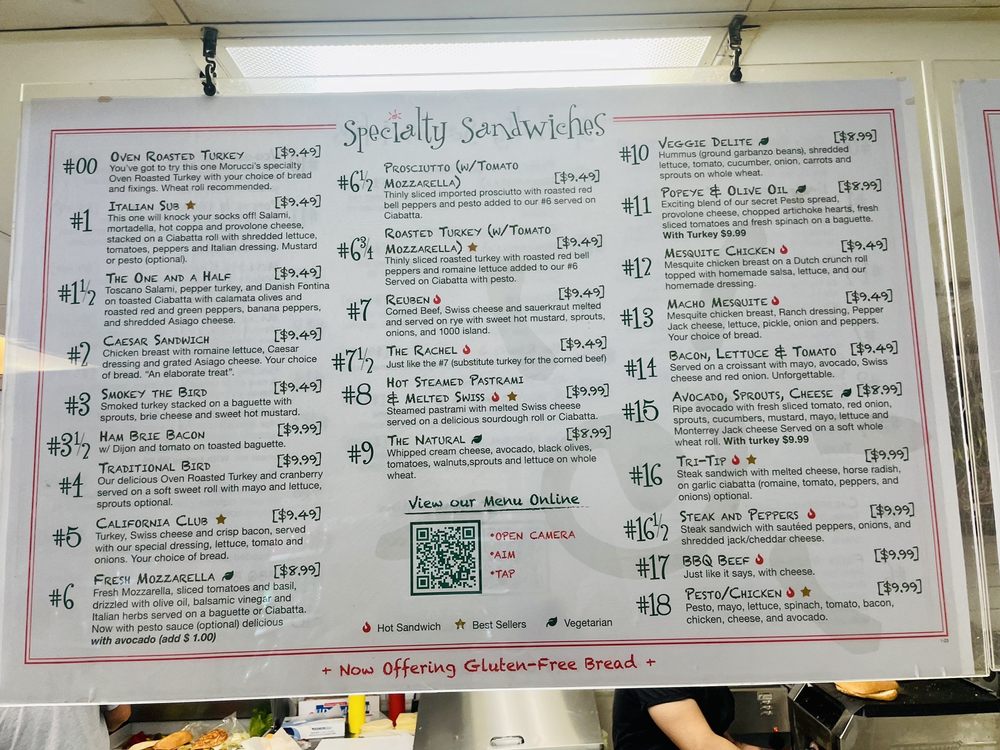 Specialty Sandwiches
#00 Oven Roasted Turkey [$9.49]
You've got to try this one Morucci's specialty
Oven Roasted Turkey with your choice of bread
and fixings. Wheat roll recommended.
#1 Italian Sub [$9.49]
This one will knock your socks off! Salami,
mortadella, hot coppa and provolone cheese,
stacked on a Ciabatta roll with shredded lettuce,
tomatoes, peppers and Italian dressing. Mustard
or pesto (optional).
#1½ The One and a Half [$9.49]
Toscano Salami, pepper turkey, and Danish Fontina
on toasted Ciabatta with calamata olives and
roasted red and green peppers, banana peppers,
and shredded Asiago cheese.
#2 Caesar Sandwich [$9.49]
Chicken breast with romaine lettuce, Caesar
dressing and grated Asiago cheese. Your choice
of bread. "An elaborate treat".
#3 Smokey the Bird [$9.49]
Smoked turkey stacked on a baguette with
sprouts, brie cheese and sweet hot mustard.
#3½ Ham Brie Bacon [$9.99]
w/ Dijon and tomato on toasted baguette.
#4 Traditional Bird [$9.99]
Our delicious Oven Roasted Turkey and cranberry
served on a soft sweet roll with mayo and lettuce,
sprouts optional.
#5 California Club [$9.49]
Turkey, Swiss cheese and crisp bacon, served
with our special dressing, lettuce, tomato and
onions. Your choice of bread.
#6 Fresh Mozzarella [$8.99]
Fresh Mozzarella, sliced tomatoes and basil,
drizzled with olive oil, balsamic vinegar and
Italian herbs served on a baguette or Ciabatta.
Now with pesto sauce (optional) delicious
with avocado (add $ 1.00)
#6½ Prosciutto (w/Tomato
Mozzarella) [$9.49]
Thinly sliced imported prosciutto with roasted red
bell peppers and pesto added to our #6 served on
Ciabatta.
#6¾ Roasted Turkey (w/Tomato
Mozzarella) [$9.49]
Thinly sliced roasted turkey with roasted red bell
peppers and romaine lettuce added to our #6
Served on Ciabatta with pesto.
#7 Reuben [$9.49]
Corned Beef, Swiss cheese and sauerkraut melted
and served on rye with sweet hot mustard, sprouts,
onions, and 1000 island.
#7½ The Rachel [$9.49]
Just like the #7 (substitute turkey for the corned beef)
#8 Hot Steamed Pastrami
& Melted Swiss [$9.99]
Steamed pastrami with melted Swiss cheese
served on a delicious sourdough roll or Ciabatta.
#9 The Natural [$8.99]
Whipped cream cheese, avocado, black olives,
tomatoes, walnuts,sprouts and lettuce on whole
wheat.
View our Menu Online
*OPEN CAMERA
*AIM
*TAP
Hot Sandwich Best Sellers Vegetarian
#10 Veggie Delite [$8.99]
Hummus (ground garbanzo beans), shredded
lettuce, tomato, cucumber, onion, carrots and
sprouts on whole wheat.
#11 Popeye & Olive Oil [$8.99]
Exciting blend of our secret Pesto spread,
provolone cheese, chopped artichoke hearts, fresh
sliced tomatoes and fresh spinach on a baguette.
With Turkey $9.99
#12 Mesquite Chicken [$9.49]
Mesquite chicken breast on a Dutch crunch roll
topped with homemade salsa, lettuce, and our
homemade dressing.
#13 Macho Mesquite [$9.49]
Mesquite chicken breast, Ranch dressing, Pepper
Jack cheese, lettuce, pickle, onion and peppers.
Your choice of bread.
#14 Bacon, Lettuce & Tomato [$9.49]
Served on a croissant with mayo, avocado, Swiss
cheese and red onion. Unforgettable.
#15 Avocado, Sprouts, Cheese [$8.99]
Ripe avocado with fresh sliced tomato, red onion,
sprouts, cucumbers, mustard, mayo, lettuce and
Monterrey Jack cheese Served on a soft whole
wheat roll. With turkey $9.99
#16 Tri-Tip [$9.99]
Steak sandwich with melted cheese, horse radish,
on garlic ciabatta (romaine, tomato, peppers, and
onions) optional.
#16½ Steak and Peppers [$9.99]
Steak sandwich with sautéed peppers, onions, and
shredded jack/cheddar cheese.
#17 BBQ Beef [$9.99]
Just like it says, with cheese.
#18 Pesto/Chicken [$9.99]
Pesto, mayo, lettuce, spinach, tomato, bacon,
chicken, cheese, and avocado.
+ Now Offering Gluten-Free Bread +